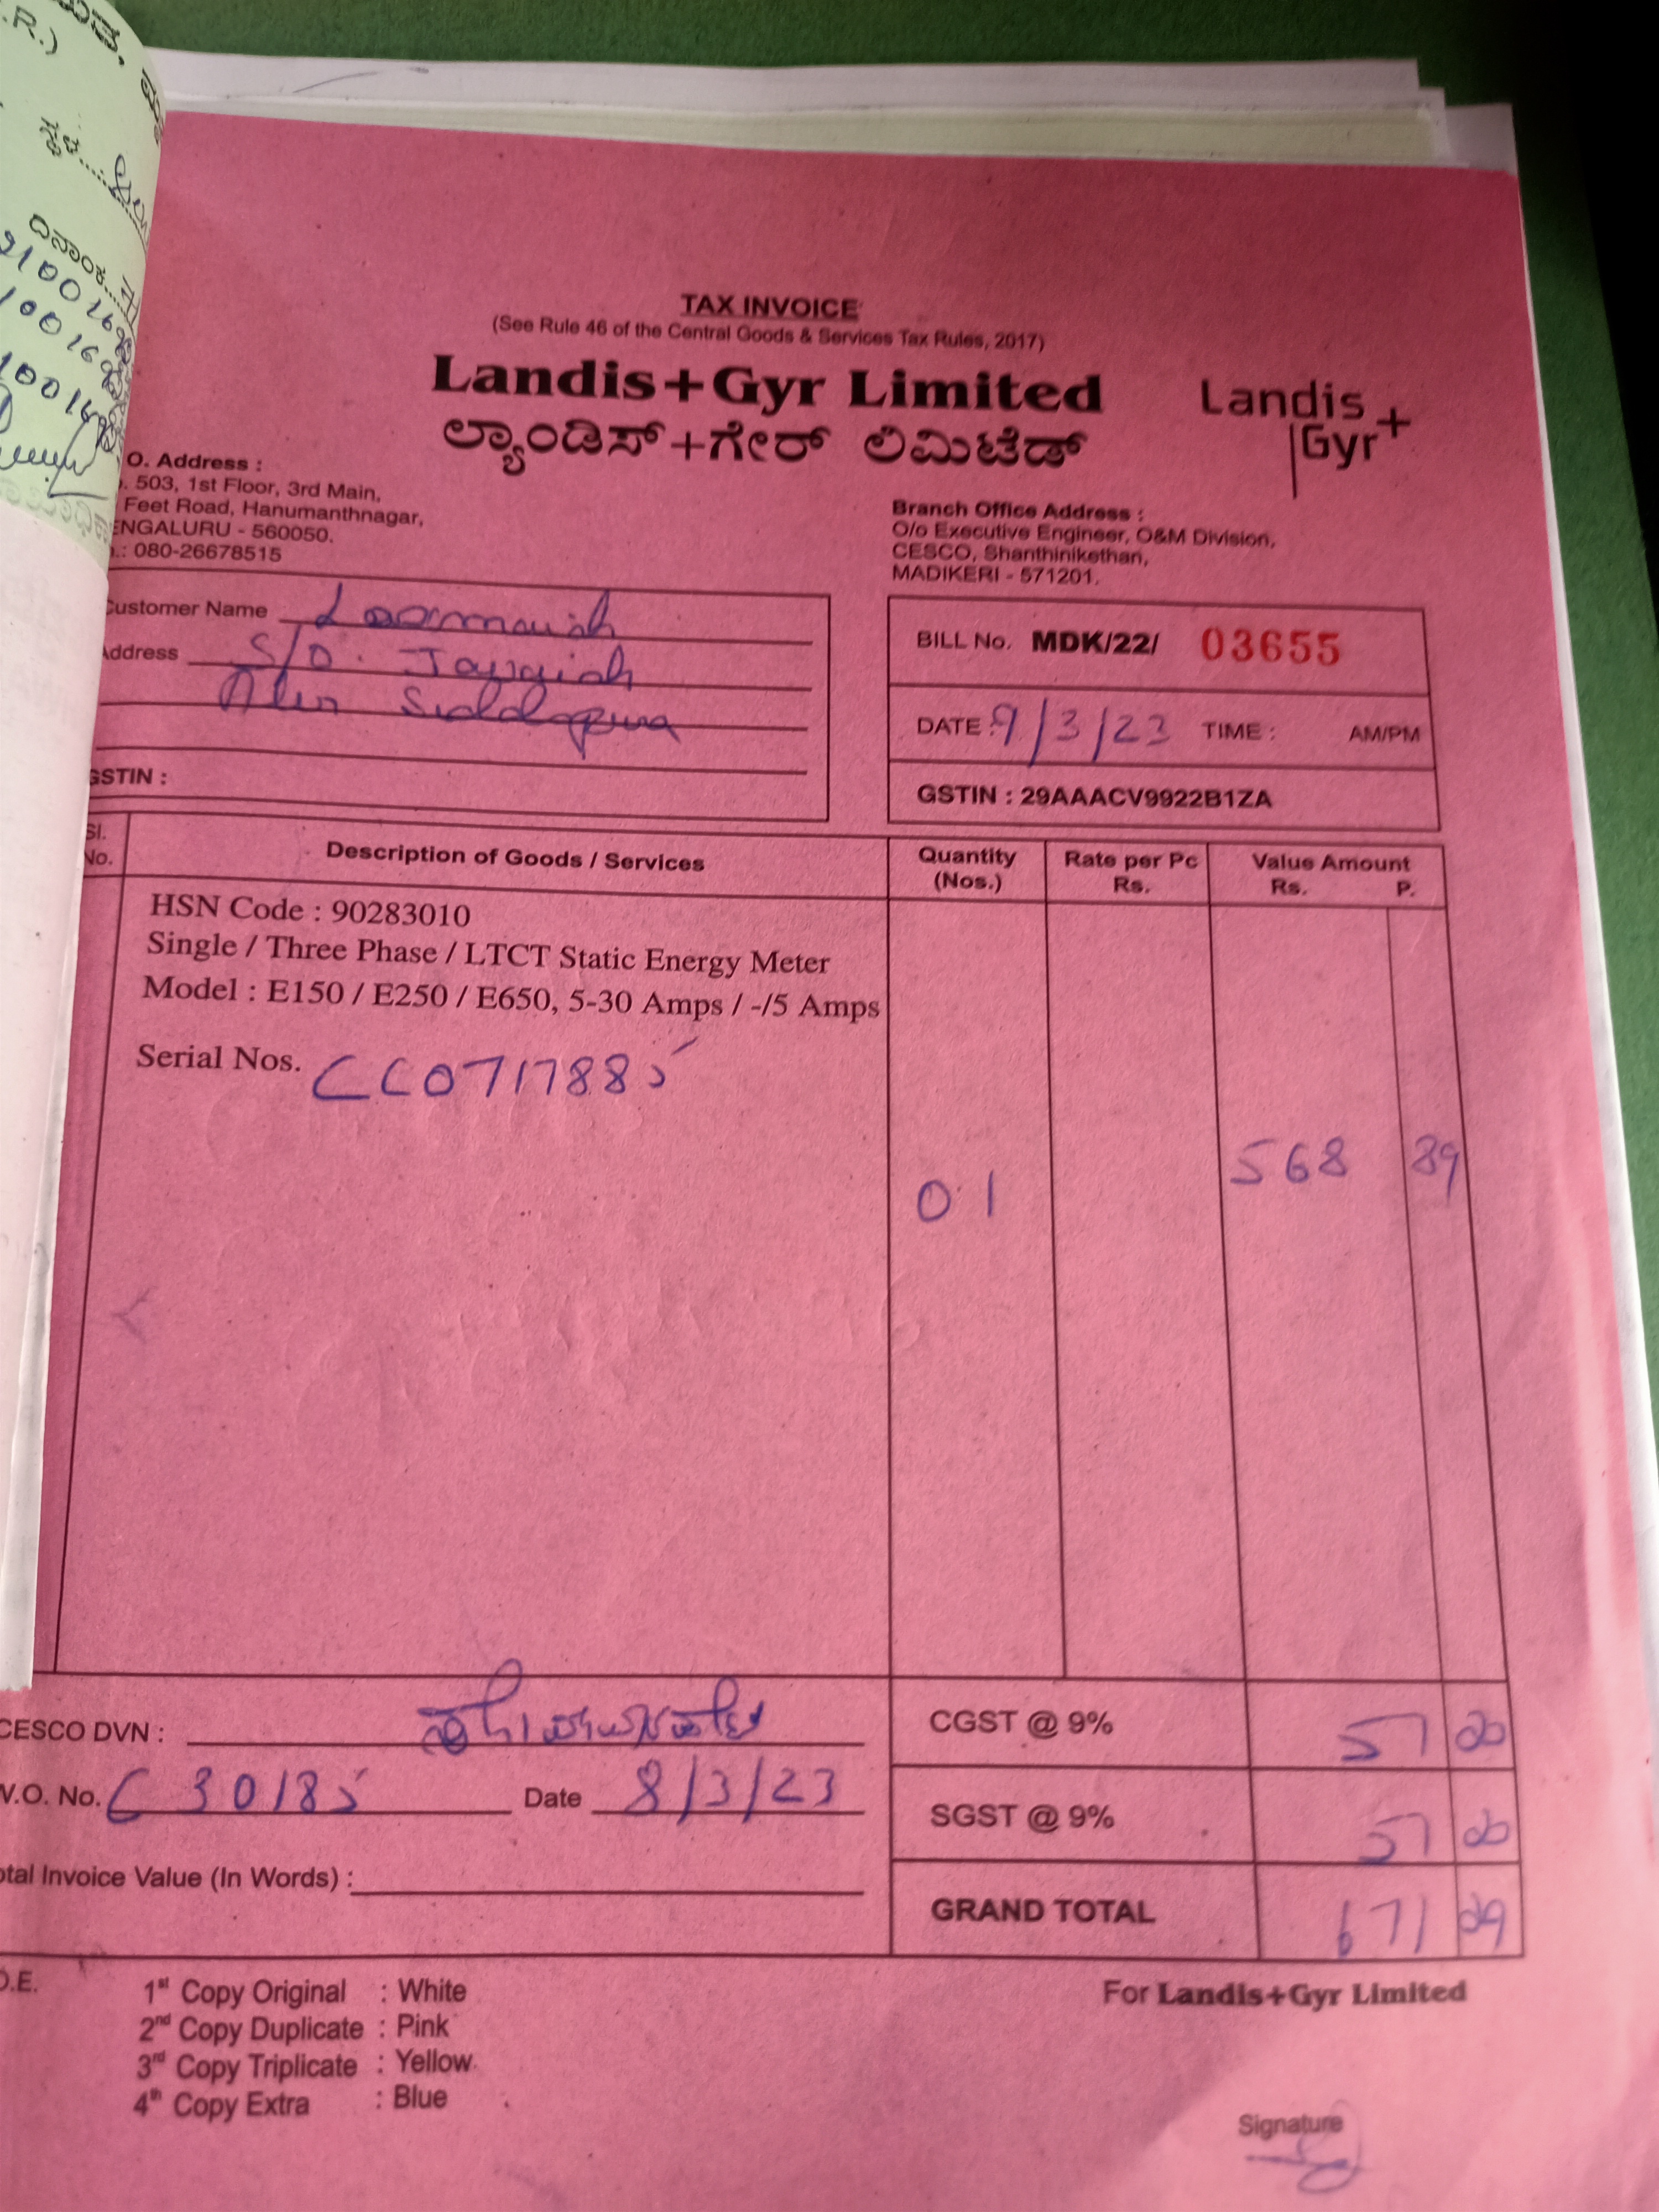 TAX INVOICE
(See Rule 46 of the Central Goods & Services Tax Rules, 2017)
Landis+Gyr Limited
ಲ್ಯಾಂಡಿಸ್+ಗೇರ್ ಲಿಮಿಟೆಡ್
Landis+
Gyr
O. Address :
. 503, 1st Floor, 3rd Main,
Feet Road, Hanumanthnagar,
ENGALURU - 560050.
.: 080-26678515
Branch Office Address :
O/o Executive Engineer, O&M Division,
CESCO, Shanthinikethan,
MADIKERI - 571201.
Customer Name
Address S/O.
Siddapura
GSTIN :
BILL No. MDK/22/ 03655
DATE : 9/3/23 TIME : AM/PM
GSTIN : 29AAACV9922B1ZA
Sl. No. Description of Goods / Services Quantity (Nos.) Rate per Pc Rs. Value Amount Rs. P.
HSN Code : 90283010
Single / Three Phase / LTCT Static Energy Meter
Model : E150 / E250 / E650, 5-30 Amps / -/5 Amps
Serial Nos. CC0717885
01 568 89
CESCO DVN :
W.O. No. C 30185 Date 8/3/23
otal Invoice Value (In Words) :
CGST @ 9% 51 20
SGST @ 9% 51 20
GRAND TOTAL 671 29
O.E.
1st Copy Original : White
2nd Copy Duplicate : Pink
3rd Copy Triplicate : Yellow
4th Copy Extra : Blue
For Landis+Gyr Limited
Signature